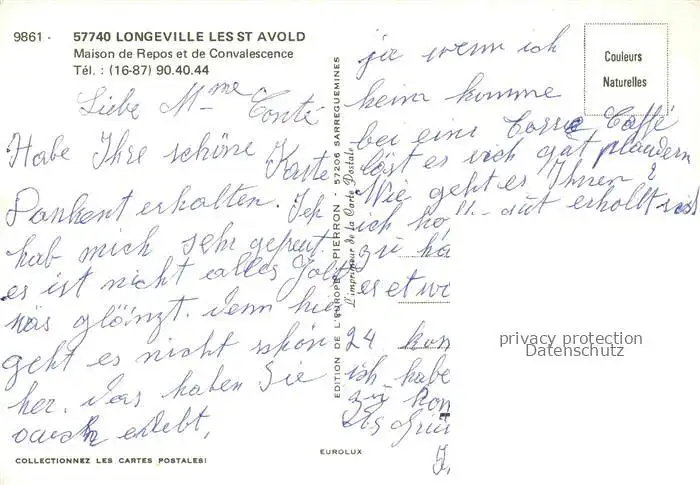 9861 - 57740 LONGEVILLE LES ST AVOLD
Maison de Repos et de Convalescence
Tél. : (16-87) 90.40.44
Liebe Mme Conté
Habe Ihre schöne Karte
Dankent erhalten. Ich
hab mich sehr gefreut.
es ist nicht alles Gold
was glänzt. denn hier
geht es nicht schön
her. das haben Sie
auch erlebt,
COLLECTIONNEZ LES CARTES POSTALES!
EDITION DE L'EUROPE - PIERRON - 57206 SARREGUEMINES
L'imprimeur de la Carte Postale
EUROLUX
Couleurs
Naturelles
ja wenn ich
heim komme
bei einr Tasse Caffé
läst es sich gut plaudern
Wie geht es Ihnen?
ich gut erhollt
zu
es
24
ich habe
zu
privacy protection
Datenschutz